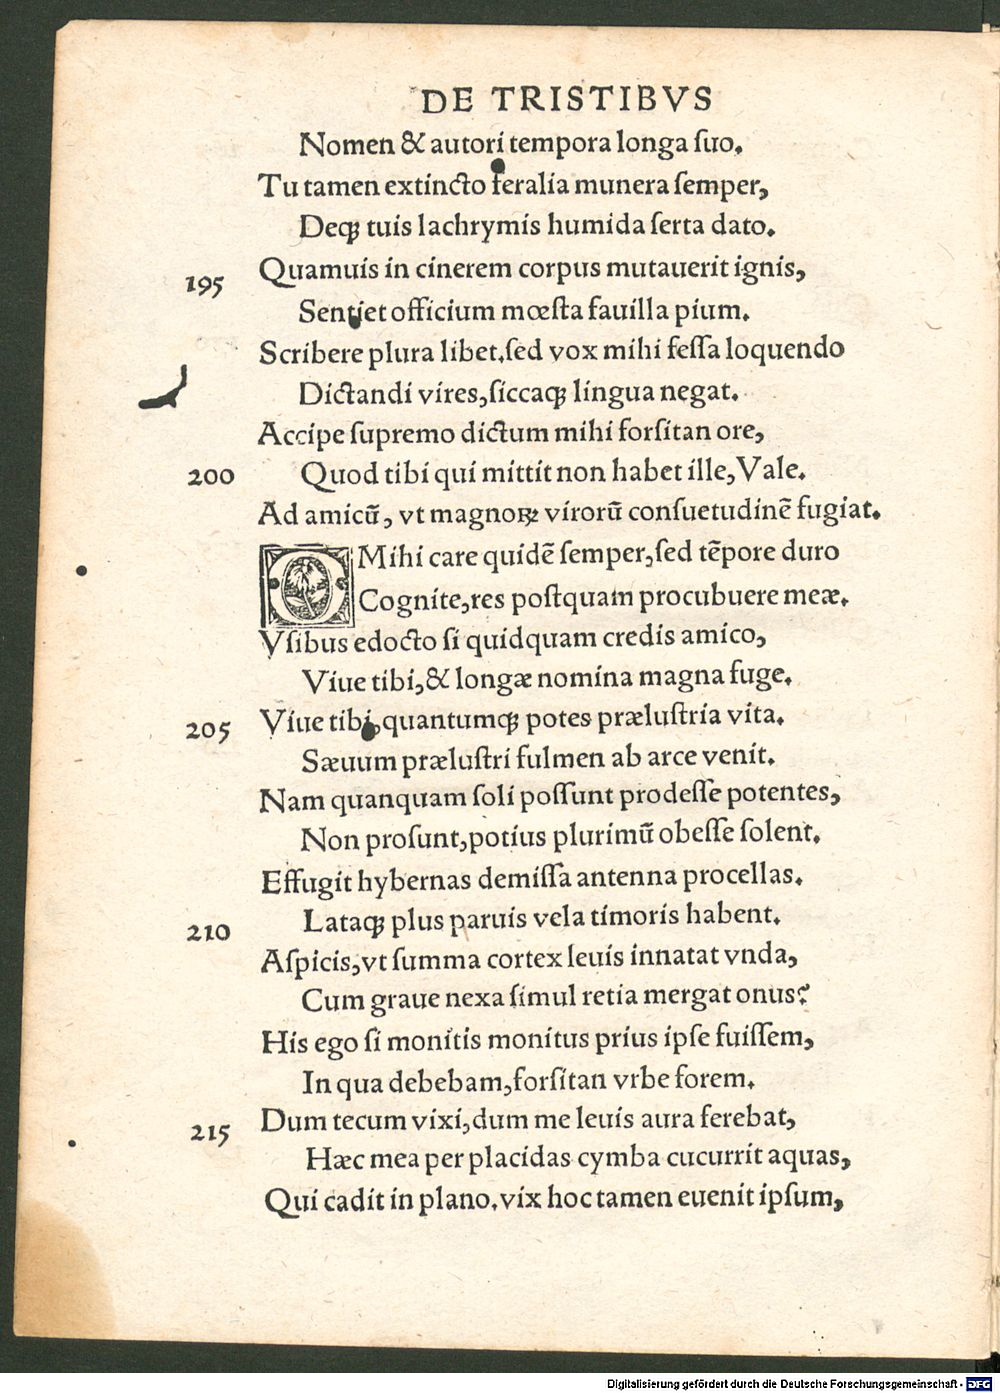 DE TRISTIBVS
Nomen & autori tempora longa ſuo.
Tu tamen extincto feralia munera ſemper,
Deqꝫ tuis lachrymis humida ſerta dato.
195 Quamuis in cinerem corpus mutauerit ignis,
Sentiet officium mœſta fauilla pium.
Scribere plura libet.ſed vox mihi feſſa loquendo
Dictandi vires,ſiccaqꝫ lingua negat.
Accipe ſupremo dictum mihi forſitan ore,
200 Quod tibi qui mittit non habet ille,Vale.
Ad amicū, vt magnoꝝ virorū conſuetudinē fugiat.
O Mihi care quidē ſemper,ſed tēpore duro
Cognite,res poſtquam procubuere meæ.
Vſibus edocto ſi quidquam credis amico,
Viue tibi,& longæ nomina magna fuge.
205 Viue tibi,quantumqꝫ potes præluſtria vita.
Sæuum præluſtri fulmen ab arce venit.
Nam quanquam ſoli poſſunt prodeſſe potentes,
Non proſunt,potius plurimū obeſſe ſolent.
Effugit hybernas demiſſa antenna procellas.
210 Lataqꝫ plus paruis vela timoris habent.
Aſpicis,vt ſumma cortex leuis innatat vnda,
Cum graue nexa ſimul retia mergat onus?
His ego ſi monitis monitus prius ipſe fuiſſem,
In qua debebam,forſitan vrbe forem.
215 Dum tecum vixi,dum me leuis aura ferebat,
Hæc mea per placidas cymba cucurrit aquas,
Qui cadit in plano.vix hoc tamen euenit ipſum,
Digitalisierung gefördert durch die Deutsche Forschungsgemeinschaft - DFG